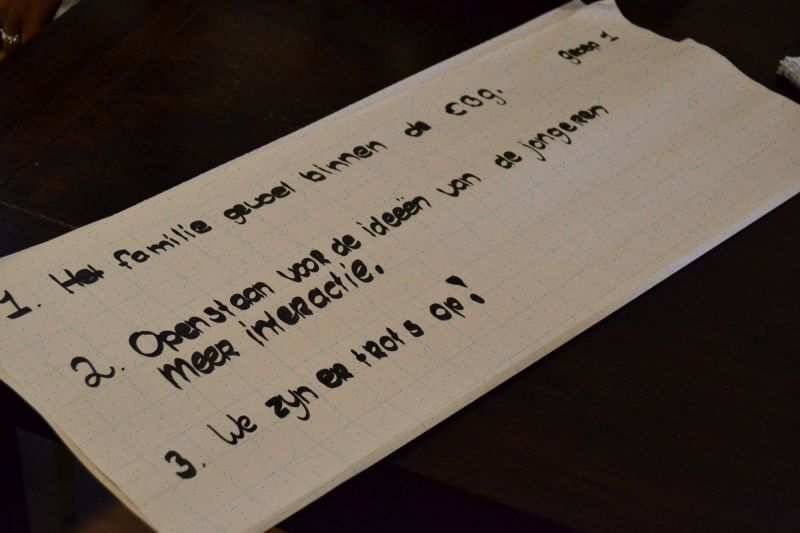 groep 1
1. Het familie gevoel binnen de COG.
2. Openstaan voor de ideeën van de jongeren
meer interactie.
3. We zijn er trots op!